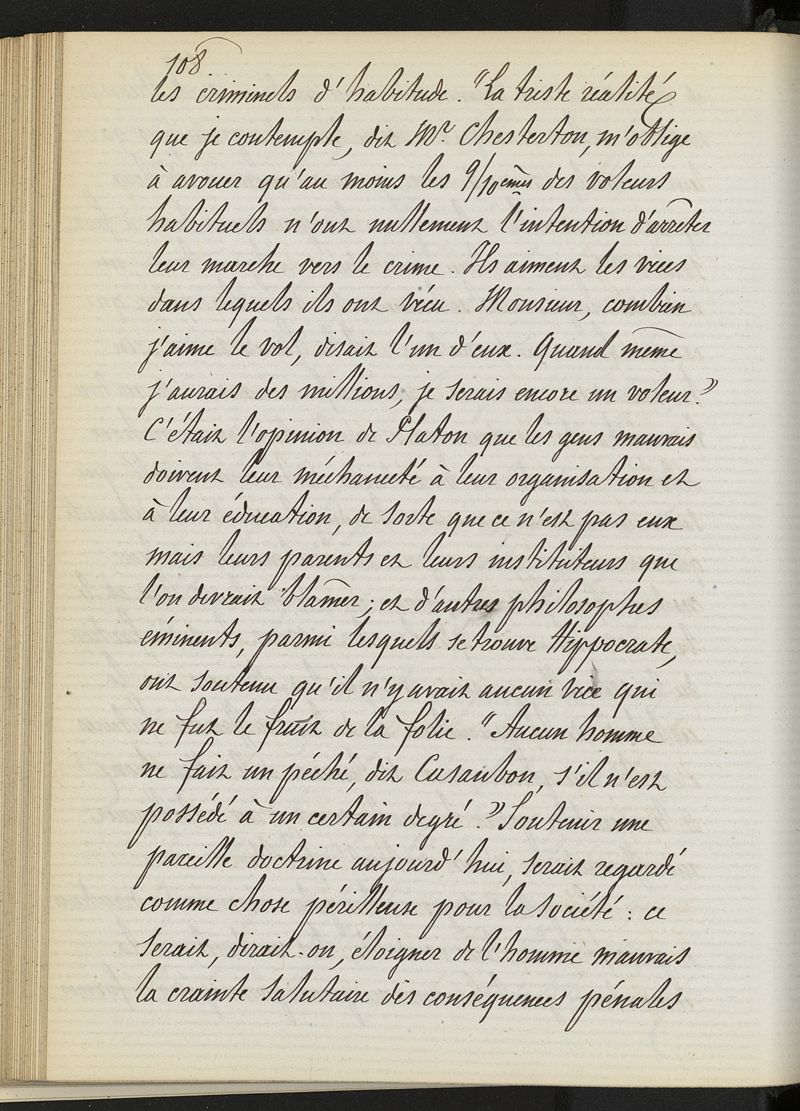 108
les criminels d'habitude. "La triste réalité
que je contemple, dit Mr. Chesterton, m'oblige
à avouer qu'au moins les 9/10emes des voleurs
habituels n'ont nullement l'intention d'arrêter
leur marche vers le crime. Ils aiment les vices
dans lequels ils ont vécu. Monsieur, combien
j'aime le vol, disait l'un d'eux. Quand même
j'aurais des millions, je serais encore un voleur."
C'était l'opinion de Platon que les gens mauvais
doivent leur méchanceté à leur organisation et
à leur éducation, de sorte que ce n'est pas eux
mais leurs parents et leurs instituteurs que
l'on devrait blamer; et d'autres philosophes
éminents, parmi lesquels se trouve Hippocrate,
ont soutenu qu'il n'y avait aucun vice qui
ne fut le fruit de la folie. "Aucun homme
ne fait un péché, dit Casaubon, s'il n'est
possédé à un certain degré." Soutenir une
pareille doctrine aujourd'hui, serait regardé
comme chose périlleuse pour la société: ce
serait, dirait-on, éloigner de l'homme mauvais
la crainte salutaire des conséquences pénales